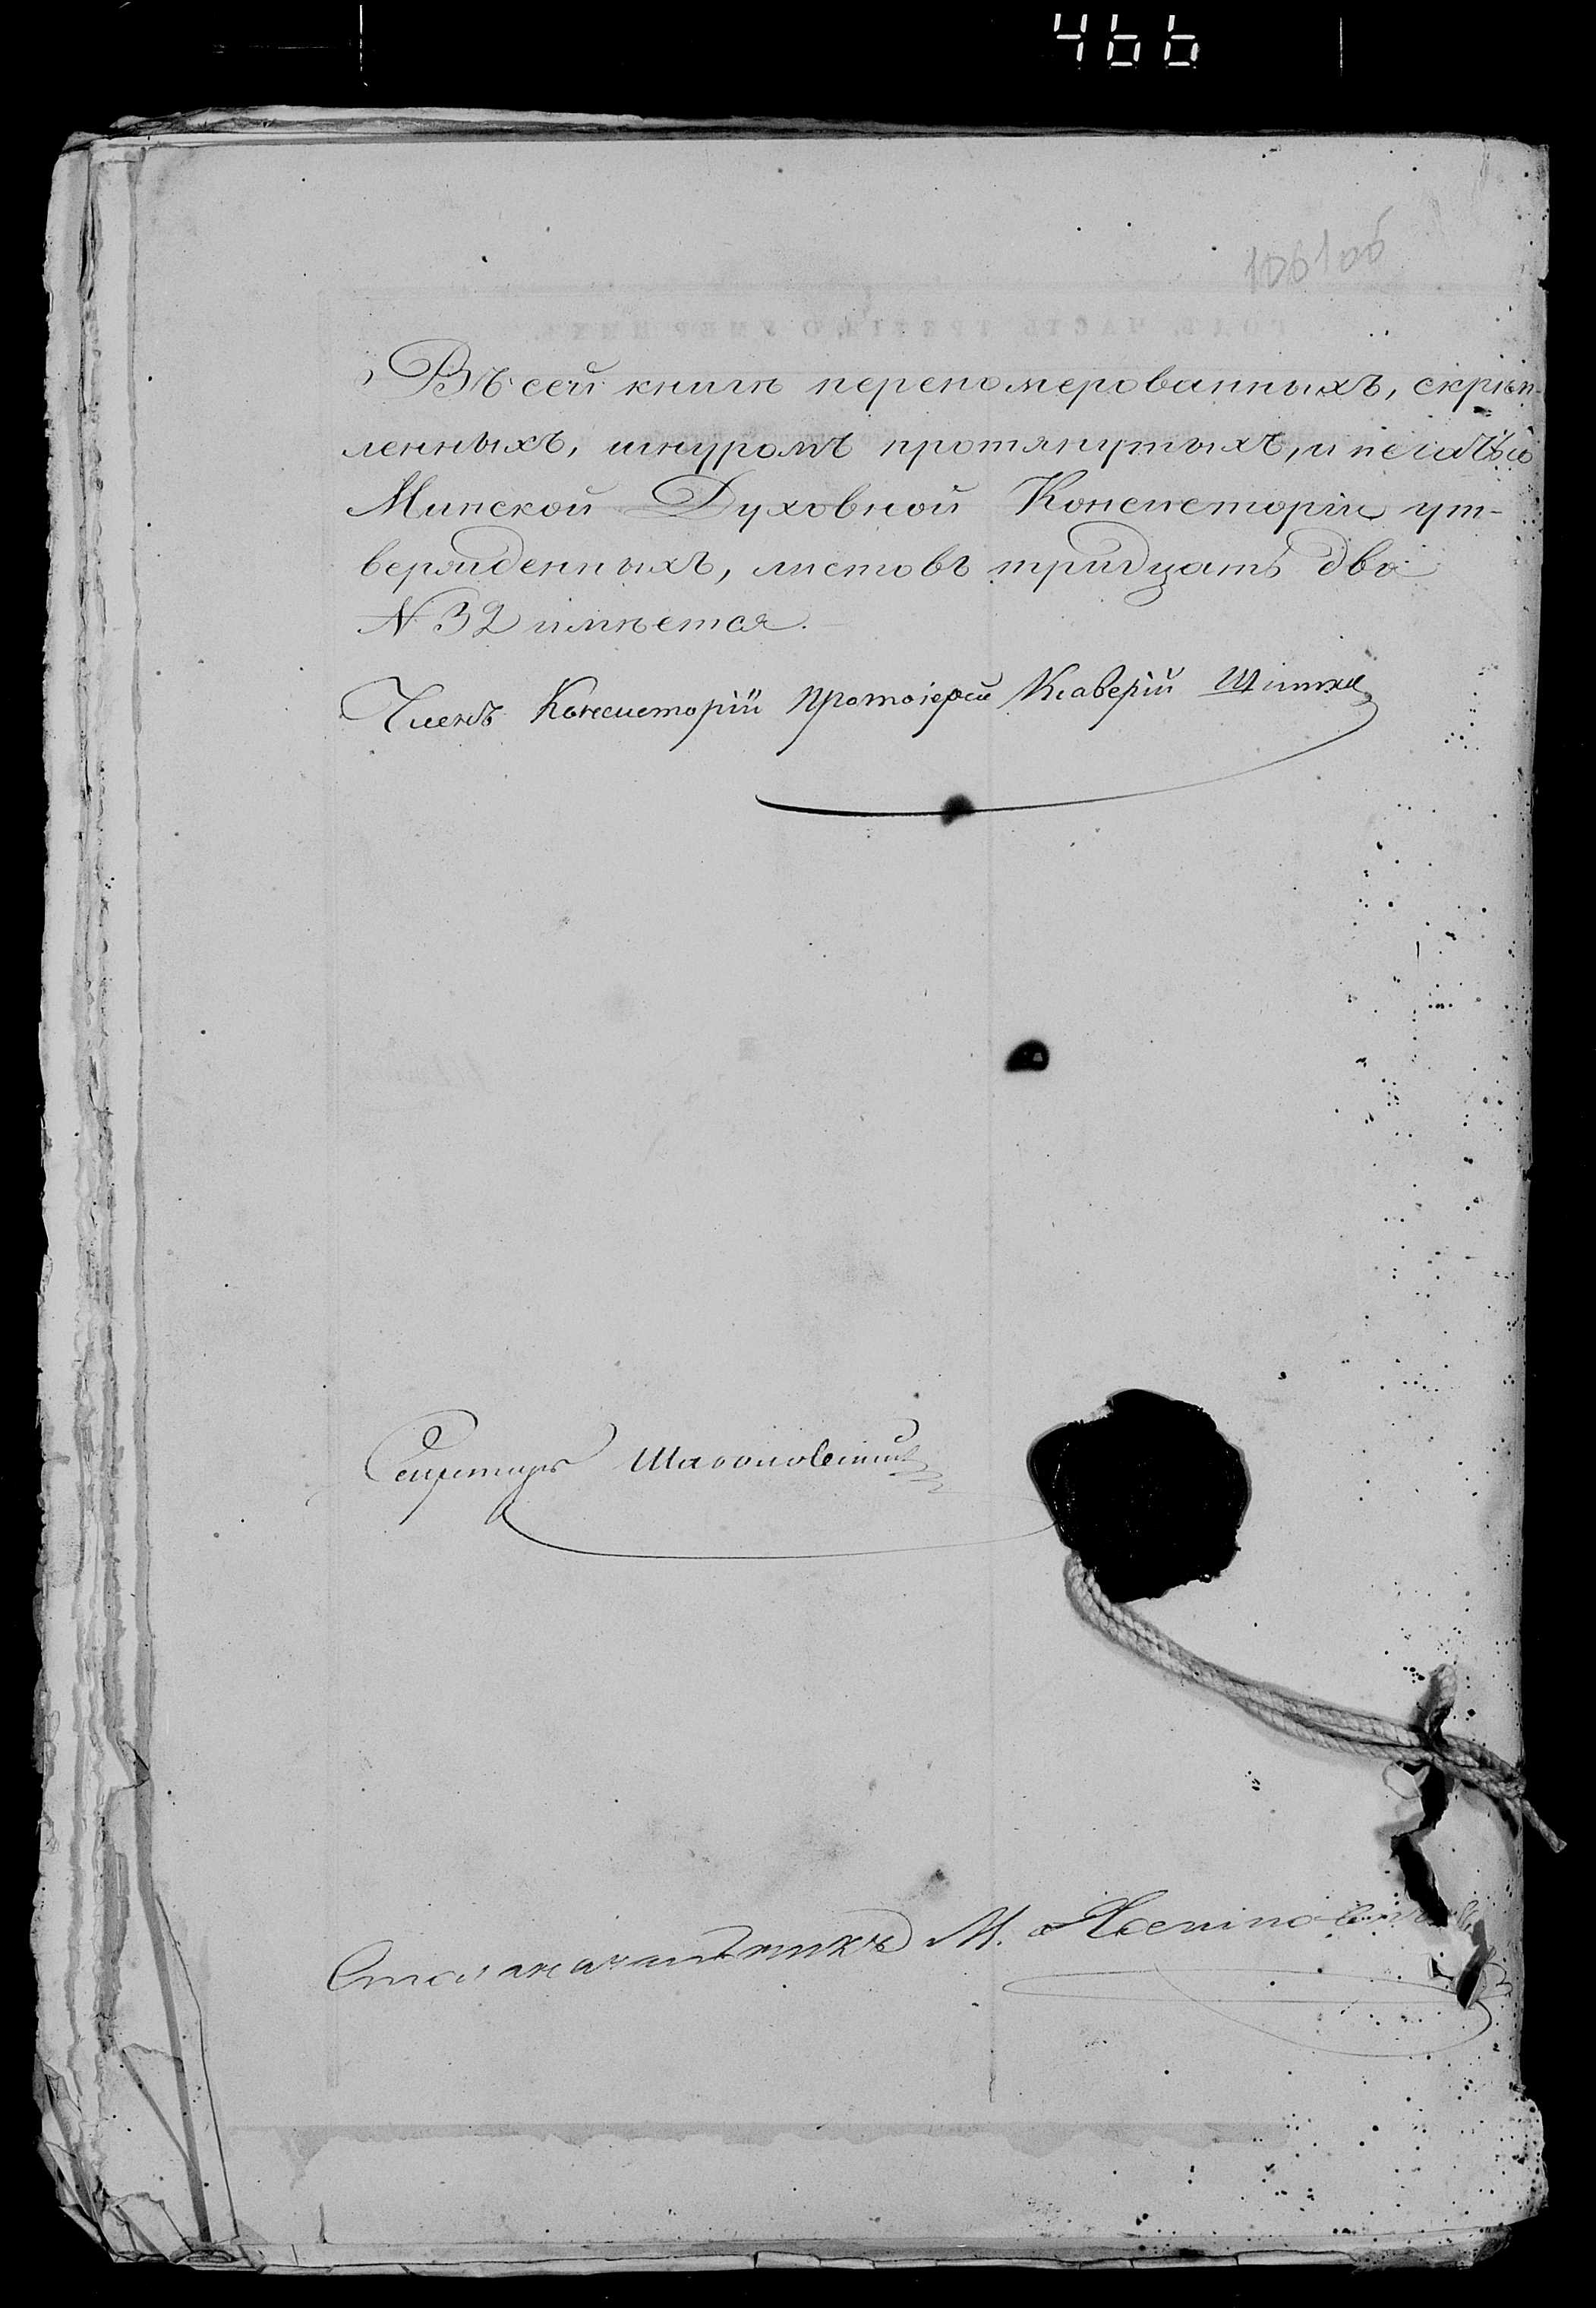 466
106 106
Въ сей книгѣ переномерованныхъ, скрѣп-
ленныхъ, шнуромъ протянутыхъ, и печатью
Минской Духовной Консисторіи ут-
вержденныхъ, листовъ тридцать два
№ 32 имѣется.
Членъ Консисторіи Протоіерей Ксаверій
Секретарь
Столоначальникъ М.